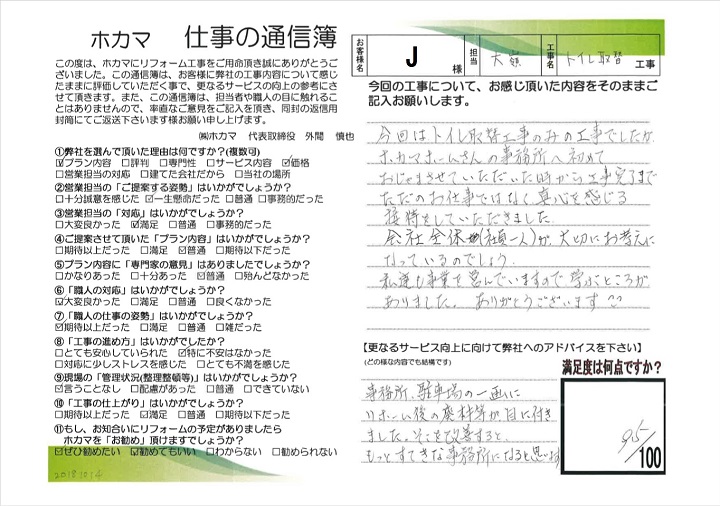 ホカマ 仕事の通信簿
この度は、ホカマにリフォーム工事をご用命頂き誠にありがとうご
ざいました。この通信簿は、お客様に弊社の工事内容について感じ
たままに評価していただく事で、更なるサービスの向上の参考にさ
せて頂きます。また、この通信簿は、担当者や職人の目に触れるこ
とはありませんので、率直なご意見をご記入を頂き、同封の返信用
封筒にてご返送下さいます様お願い申し上げます。
㈱ホカマ 代表取締役 外間 慎也
①弊社を選んで頂いた理由は何ですか?(複数可)
☑プラン内容 □評判 □専門性 □サービス内容 ☑価格
□営業担当の対応 □建てた会社だから □当社の場所
②営業担当の「ご提案する姿勢」はいかがでしょうか?
□十分誠意を感じた ☑一生懸命だった □普通 □事務的だった
③営業担当の「対応」はいかがでしょうか?
□大変良かった ☑満足 □普通 □事務的だった
④ご提案させて頂いた「プラン内容」はいかがでしょうか?
□期待以上だった □満足 ☑普通 □期待以下だった
⑤プラン内容に「専門家の意見」はありましたでしょうか?
□かなりあった □十分あった ☑普通 □殆んどなかった
⑥「職人の対応」はいかがでしょうか?
☑大変良かった □満足 □普通 □良くなかった
⑦「職人の仕事の姿勢」はいかがでしょうか?
☑期待以上だった □満足 □普通 □雑だった
⑧「工事の進め方」はいかがでしたか?
□とても安心していられた ☑特に不安はなかった
□対応に少しストレスを感じた □とても不満を感じた
⑨現場の「管理状況(整理整頓等)」はいかがでしょうか?
☑言うことなし □配慮があった □普通 □できていない
⑩「工事の仕上がり」はいかがでしょうか?
□期待以上だった ☑満足 □普通 □期待以下だった
⑪もし、お知合いにリフォームの予定がありましたら
ホカマを「お勧め」頂けますでしょうか?
☑ぜひ勧めたい ☑勧めてもいい □わからない □勧められない
お客様名 J 様 担当 大嶺 工事名 トイレ取替 工事
今回の工事について、お感じ頂いた内容をそのままご
記入お願いします。
今回はトイレ取替工事のみの工事でしたが
ホカマホームさんの事務所へ初めて
おじゃまさせていただいた時から工事完了まで
ただのお仕事ではなく真心を感じる
接待をしていただきました。
会社全体(社員一人)が大切にお考えに
なっているのでしょう。
私達も事業を営んでいますので学ぶところが
ありました。ありがとうございます
【更なるサービス向上に向けて弊社へのアドバイスを下さい】
(どの様な内容でも結構です)
事務所、駐車場の一画に
リホーム後の廃材等が目に付き
ました。そこを改善すると、
もっとすてきな事務所になると思います
満足度は何点ですか?
95/100